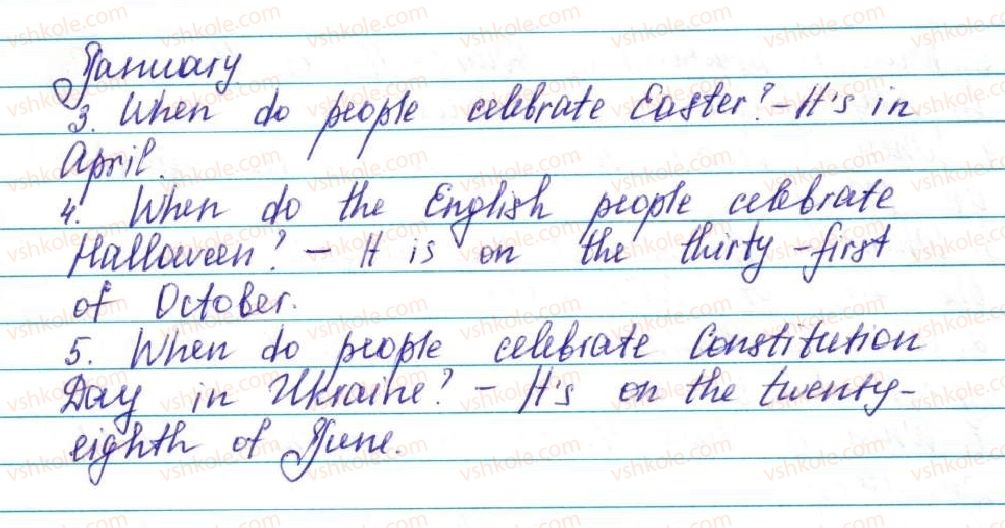 January
3. When do people celebrate Easter? - It's in
April.
4. When do the English people celebrate
Halloween? - It is on the thirty-first
of October.
5. When do people celebrate Constitution
Day in Ukraine? - It's on the twenty-
eighth of June.
vshkole.com